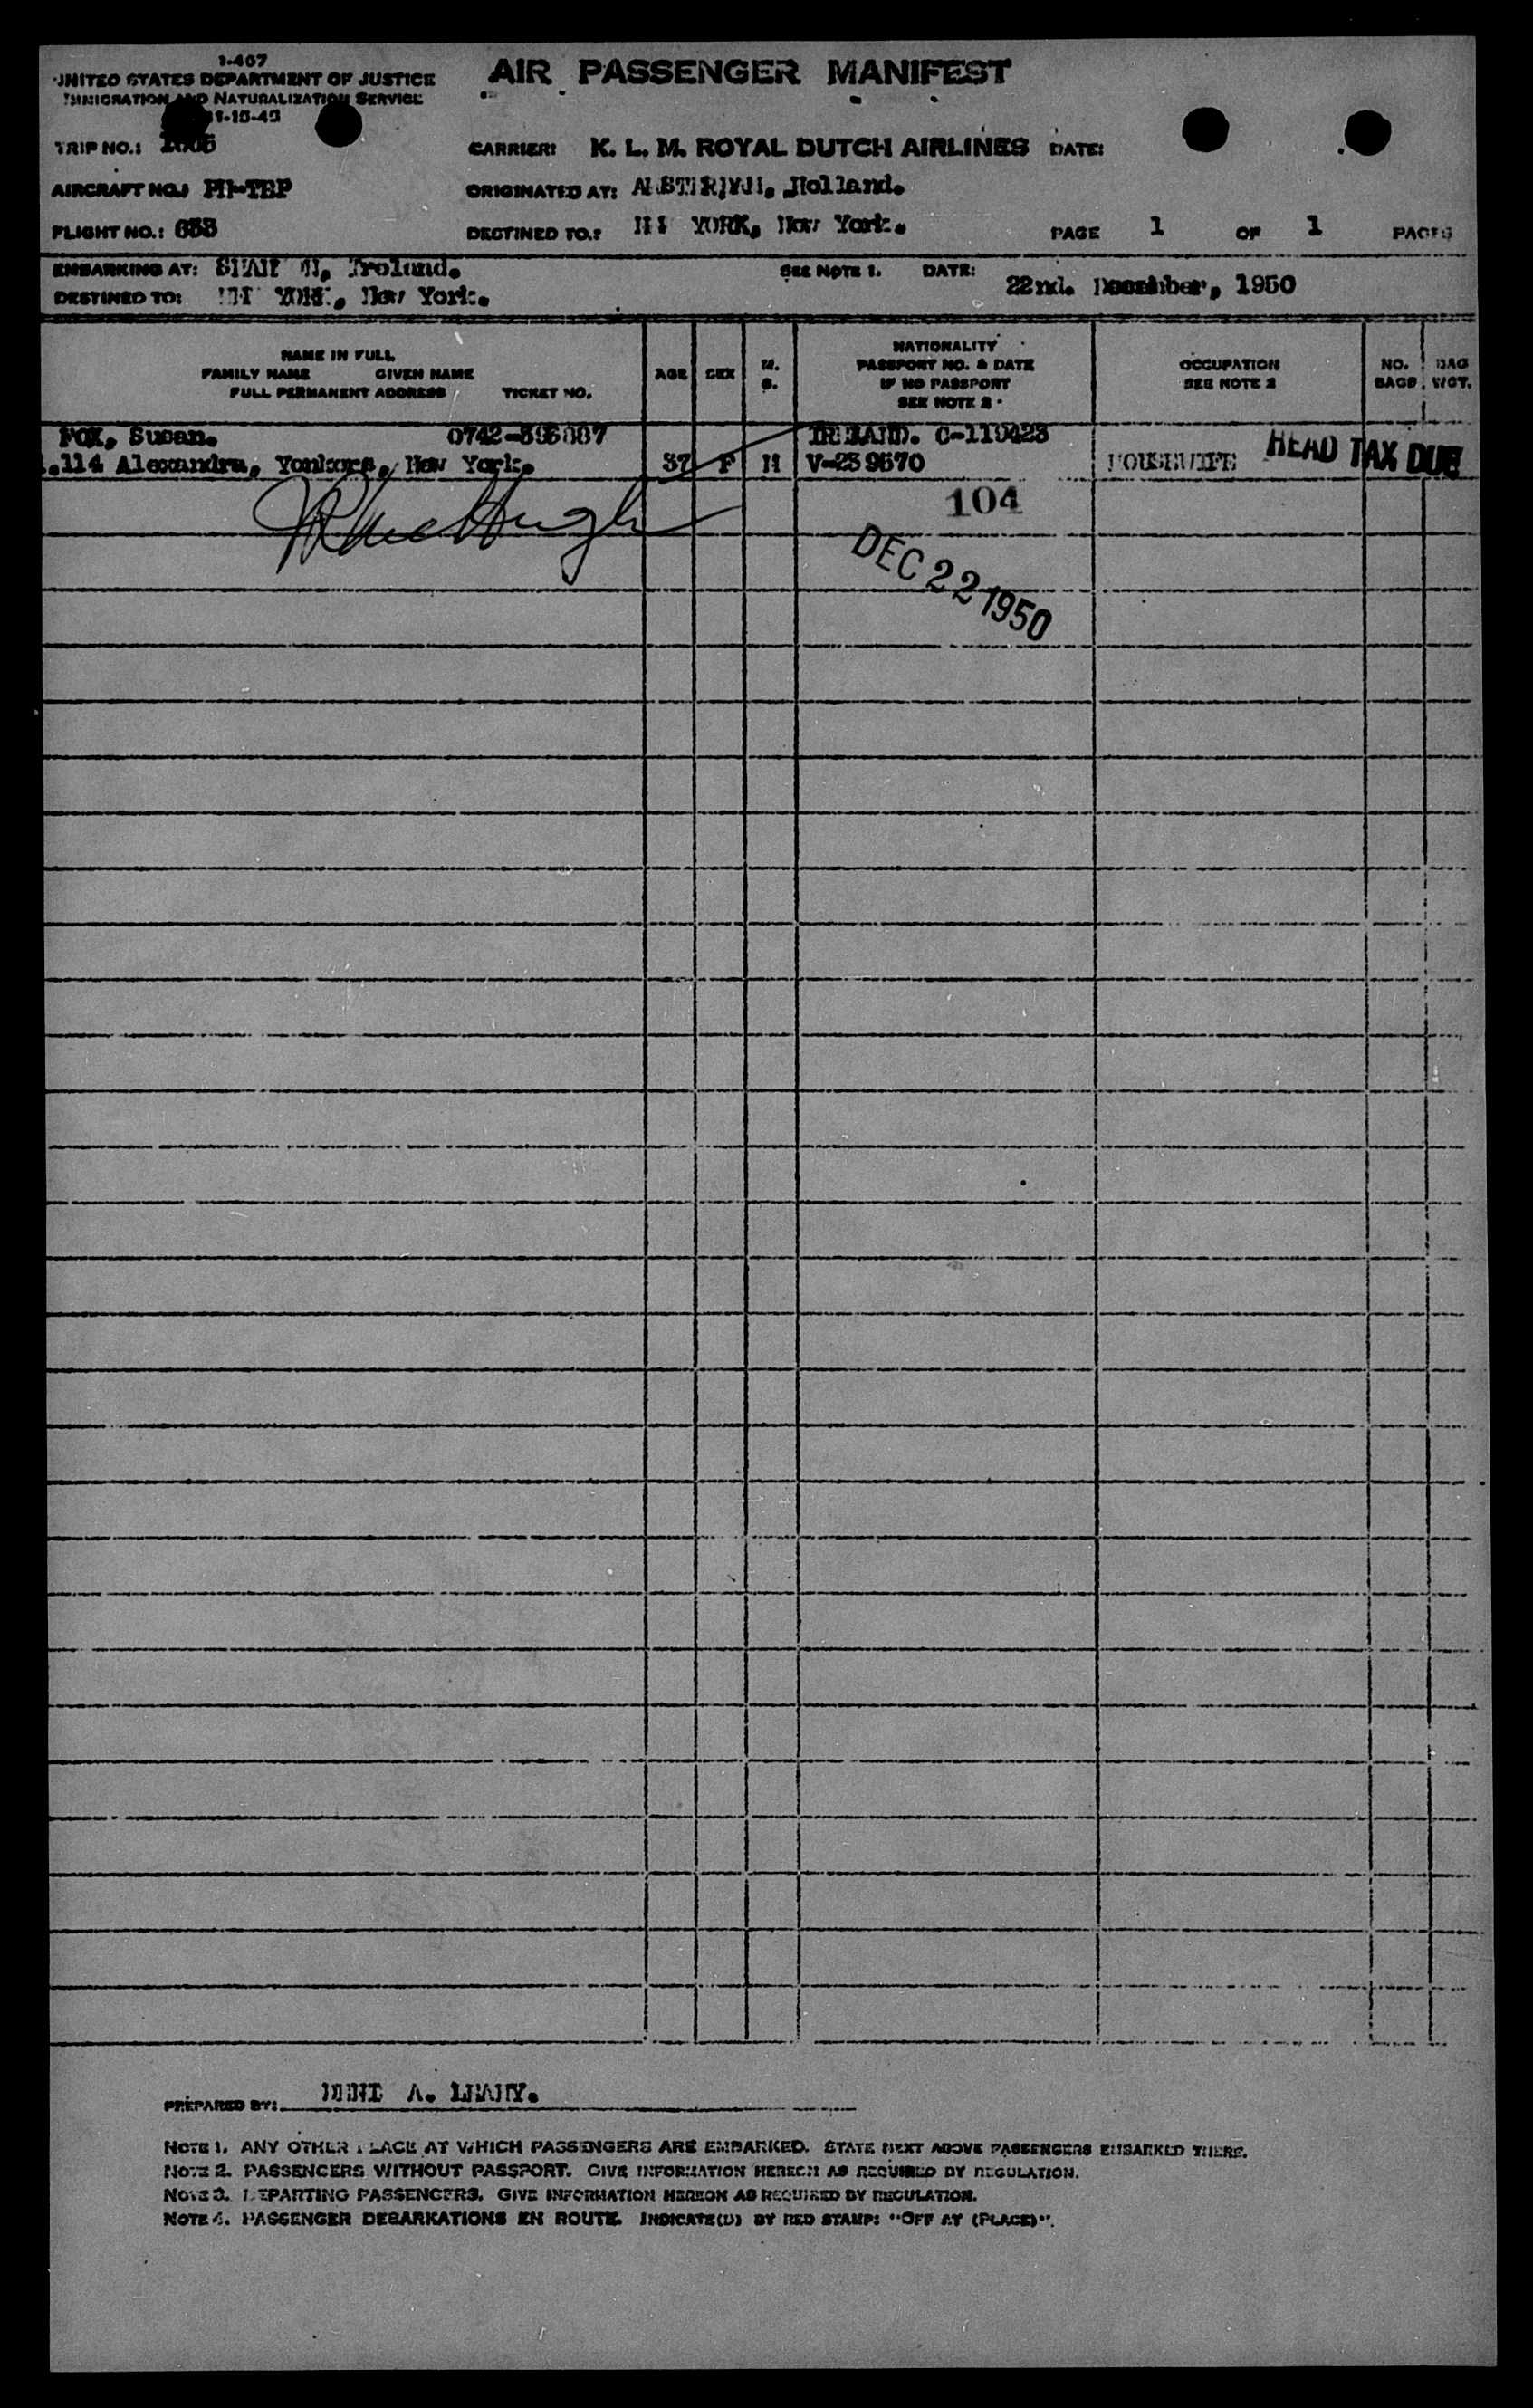 I-407
UNITED STATES DEPARTMENT OF JUSTICE
IMMIGRATION AND NATURALIZATION SERVICE
AIR PASSENGER MANIFEST
TRIP NO.:
CARRIER: K. L. M. ROYAL DUTCH AIRLINES DATE:
AIRCRAFT NO.: PH-TEP
ORIGINATED AT: AMSTERDAM, Holland.
FLIGHT NO.: 633
DESTINED TO.: NEW YORK, New York.
PAGE 1 OF 1 PAGES
EMBARKING AT: SHANNON, Ireland.
SEE NOTE 1. DATE: 22nd. December, 1950
DESTINED TO: NEW YORK, New York.
NAME IN FULL
FAMILY NAME GIVEN NAME
FULL PERMANENT ADDRESS TICKET NO.
AGE
SEX
M.
S.
NATIONALITY
PASSPORT NO. & DATE
IF NO PASSPORT
SEE NOTE 2
OCCUPATION
SEE NOTE 2
NO.
BAGS
BAG
WGT.
FOX, Susan. IRELAND. C-110423
114 Alexandra, Yonkers, New York. 37 F M V-239670 HOUSEWIFE HEAD TAX DUE
104
DEC 22 1950
PREPARED BY: A. LEAHY.
NOTE 1. ANY OTHER PLACE AT WHICH PASSENGERS ARE EMBARKED. STATE NEXT ABOVE PASSENGERS EMBARKED THERE.
NOTE 2. PASSENGERS WITHOUT PASSPORT. GIVE INFORMATION HEREON AS REQUIRED BY REGULATION.
NOTE 3. DEPARTING PASSENGERS. GIVE INFORMATION HEREON AS REQUIRED BY REGULATION.
NOTE 4. PASSENGER DEBARKATIONS EN ROUTE. INDICATE(D) BY RED STAMP: "OFF AT (PLACE)".